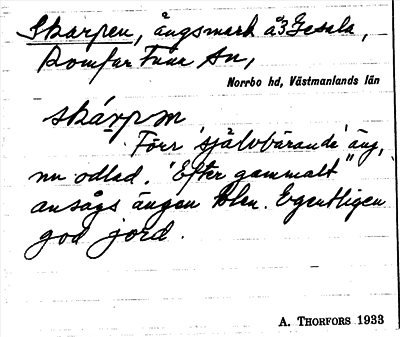 Skarpen, ängsmark å 3 Gesala,
Romfartuna sn,
Norrbo hd, Västmanlands län
skárpm
Förr 'självbärande' äng,
nu odlad. "Efter gammalt"
ansågs ängen klen. Egentligen
god jord.
A. THORFORS 1933